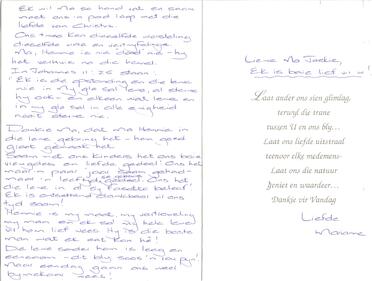 Ek wil Ma se hand vat en saam
met ons in pad loop met die
liefde van Christus.
Ons twee ken dieselfde worsteling
dieselfde vrae en vertwyfeling.
Ma, Hennie is nie dood nie - hy
het verhuis na die hemel.
In Johannes 11:25 staan:
"Ek is die opstanding en die lewe
wie in My glo sal lewe, al sterwe
hy ook - en elkeen wat lewe en
in my glo sal in alle ewigheid
nie sterwe nie.
Dankie Ma, dat Ma Hennie in
die lewe gebring het - hom goed
groot gemaak het.
Saam met ons kinders het ons baie
vreugdes en liefde gedeel. Ons het
maar 'n paar jaar saam gehad -
maar 'n leeftyd
die lewe in al sy facette beleef.
Ek is dankbaar vir ons
tyd saam!
Hennie is my maat,
my man en ek sal vir hele lewe
vir hom lief wees. Hy is die beste
man wat ek ooit kon hê!
Die lewe sonder hom is leeg en
eensaam - dit bly soos 'n
Maar eendag gaan ons weer
bymekaar wees!
Liewe Ma Jackie,
Ek is baie lief vir u!
Laat ander ons sien glimlag,
terwyl die trane
tussen U en ons bly...
Laat ons liefde uitstraal
teenoor elke medemens-
Laat ons die natuur
geniet en waardeer...
Dankie vir Vandag
Liefde